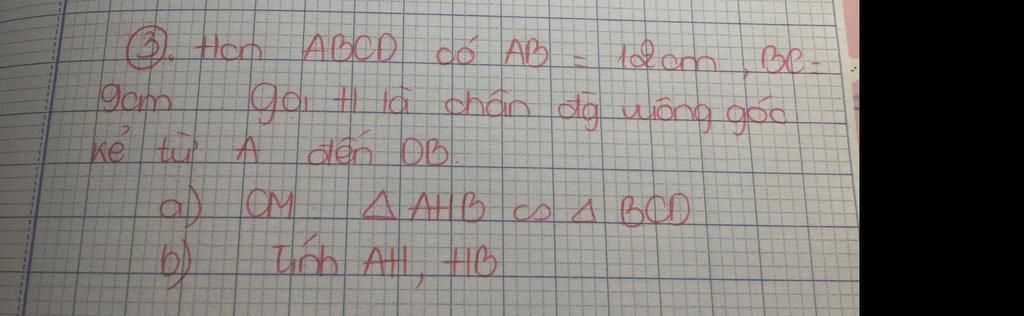 ③. Hcn ABCD có AB = 12cm, BC=
9cm gọi H là chân đg vuông góc
kẻ từ A đến DB.
a) CM ∆ AHB ∽ ∆ BCD
b) Tính AH, HB